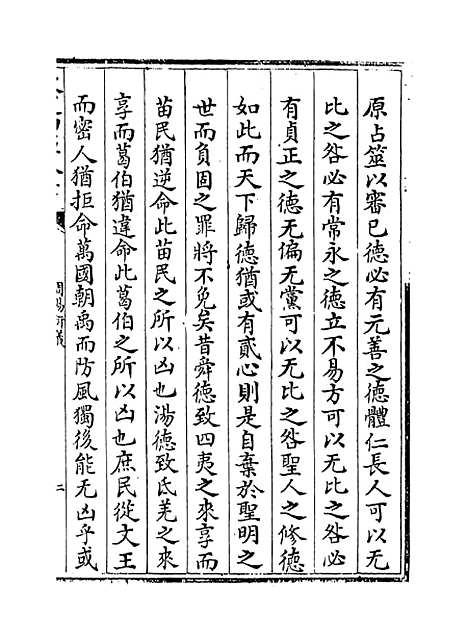 原占筮以審已德必有元善之德體仁長人可以无
比之咎必有常永之德立不易方可以无比之咎必
有貞正之德无偏无黨可以无比之咎聖人之修德
如此而天下歸德猶或有貳心則是自棄於聖明之
世而負固之罪將不免矣昔舜德致四夷之來享而
苗民猶逆命此苗民之所以凶也湯德致氐羌之來
享而葛伯猶違命此葛伯之所以凶也庶民從文王
而密人猶拒命萬國朝禹而防風獨後能无凶乎或
周易衍義
二